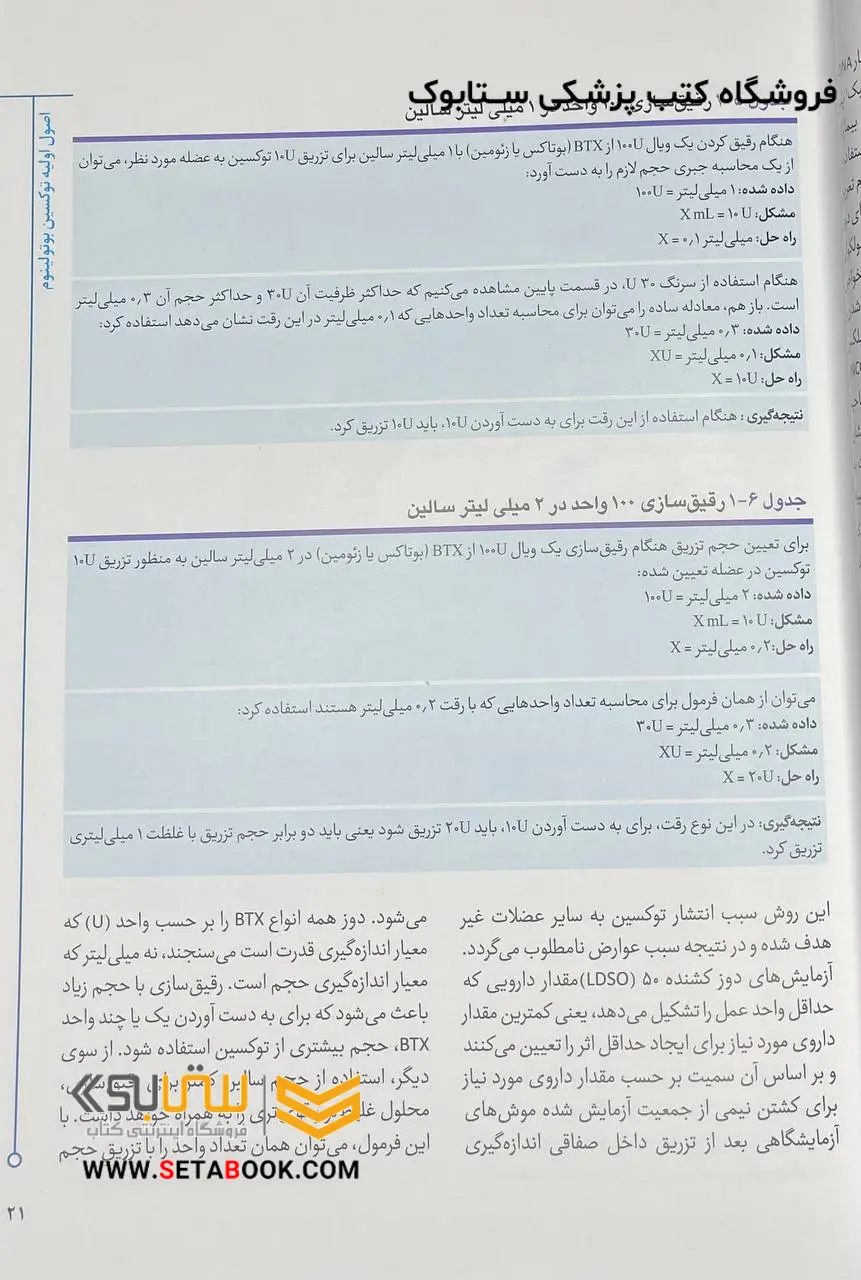 فروشگاه کتب پزشکی ستابوک
رقیق‌سازی ۱۰۰ واحد در ۱ میلی لیتر سالین
هنگام رقیق کردن یک ویال ۱۰۰U از BTX (بوتاکس یا زئومین) با ۱ میلی‌لیتر سالین برای تزریق ۱۰U توکسین به عضله مورد نظر، می‌توان
از یک محاسبه جبری حجم لازم را به دست آورد:
داده شده: ۱ میلی‌لیتر = ۱۰۰U
مشکل: X mL = ۱۰ U
راه حل: میلی‌لیتر ۰٫۱ = X
هنگام استفاده از سرنگ ۳۰ U، در قسمت پایین مشاهده می‌کنیم که حداکثر ظرفیت آن ۳۰U و حداکثر حجم آن ۰٫۳ میلی‌لیتر
است. باز هم، معادله ساده را می‌توان برای محاسبه تعداد واحدهایی که ۰٫۱ میلی‌لیتر در این رقت نشان می‌دهد استفاده کرد:
داده شده: ۰٫۳ میلی‌لیتر = ۳۰U
مشکل: ۰٫۱ میلی‌لیتر = XU
راه حل: X = ۱۰U
نتیجه‌گیری: هنگام استفاده از این رقت برای به دست آوردن ۱۰U، باید ۱۰U تزریق کرد.
جدول ۶-۱ رقیق‌سازی ۱۰۰ واحد در ۲ میلی لیتر سالین
برای تعیین حجم تزریق هنگام رقیق‌سازی یک ویال ۱۰۰U از BTX (بوتاکس یا زئومین) در ۲ میلی‌لیتر سالین به منظور تزریق ۱۰U
توکسین در عضله تعیین شده:
داده شده: ۲ میلی‌لیتر = ۱۰۰U
مشکل: X mL = ۱۰ U
راه حل: ۰٫۲ میلی‌لیتر = X
می‌توان از همان فرمول برای محاسبه تعداد واحدهایی که با رقت ۰٫۲ میلی‌لیتر هستند استفاده کرد:
داده شده: ۰٫۳ میلی‌لیتر = ۳۰U
مشکل: ۰٫۲ میلی‌لیتر = XU
راه حل: X = ۲۰U
نتیجه‌گیری: در این نوع رقت، برای به دست آوردن ۱۰U، باید ۲۰U تزریق شود یعنی باید دو برابر حجم تزریق با غلظت ۱ میلی‌لیتری
تزریق کرد.
این روش سبب انتشار توکسین به سایر عضلات غیر
هدف شده و در نتیجه سبب عوارض نامطلوب می‌گردد.
آزمایش‌های دوز کشنده ۵۰ (LDSO) مقدار دارویی که
حداقل واحد عمل را تشکیل می‌دهد، یعنی کمترین مقدار
داروی مورد نیاز برای ایجاد حداقل اثر را تعیین می‌کنند
و بر اساس آن سمیت بر حسب مقدار داروی مورد نیاز
برای کشتن نیمی از جمعیت آزمایش شده موش‌های
آزمایشگاهی بعد از تزریق داخل صفاقی اندازه‌گیری
می‌شود. دوز همه انواع BTX را بر حسب واحد (U) که
معیار اندازه‌گیری قدرت است می‌سنجند، نه میلی‌لیتر که
معیار اندازه‌گیری حجم است. رقیق‌سازی با حجم زیاد
باعث می‌شود که برای به دست آوردن یک یا چند واحد
BTX، حجم بیشتری از توکسین استفاده شود. از سوی
دیگر، استفاده از حجم سالین کمتر برای
محلول را به همراه خواهد داشت. با
این فرمول، می‌توان همان تعداد واحد را با تزریق حجم
ستابوک
فروشگاه اینترنتی کتاب
WWW.SETABOOK.COM
اصول اولیه توکسین بوتولینوم
۲۱